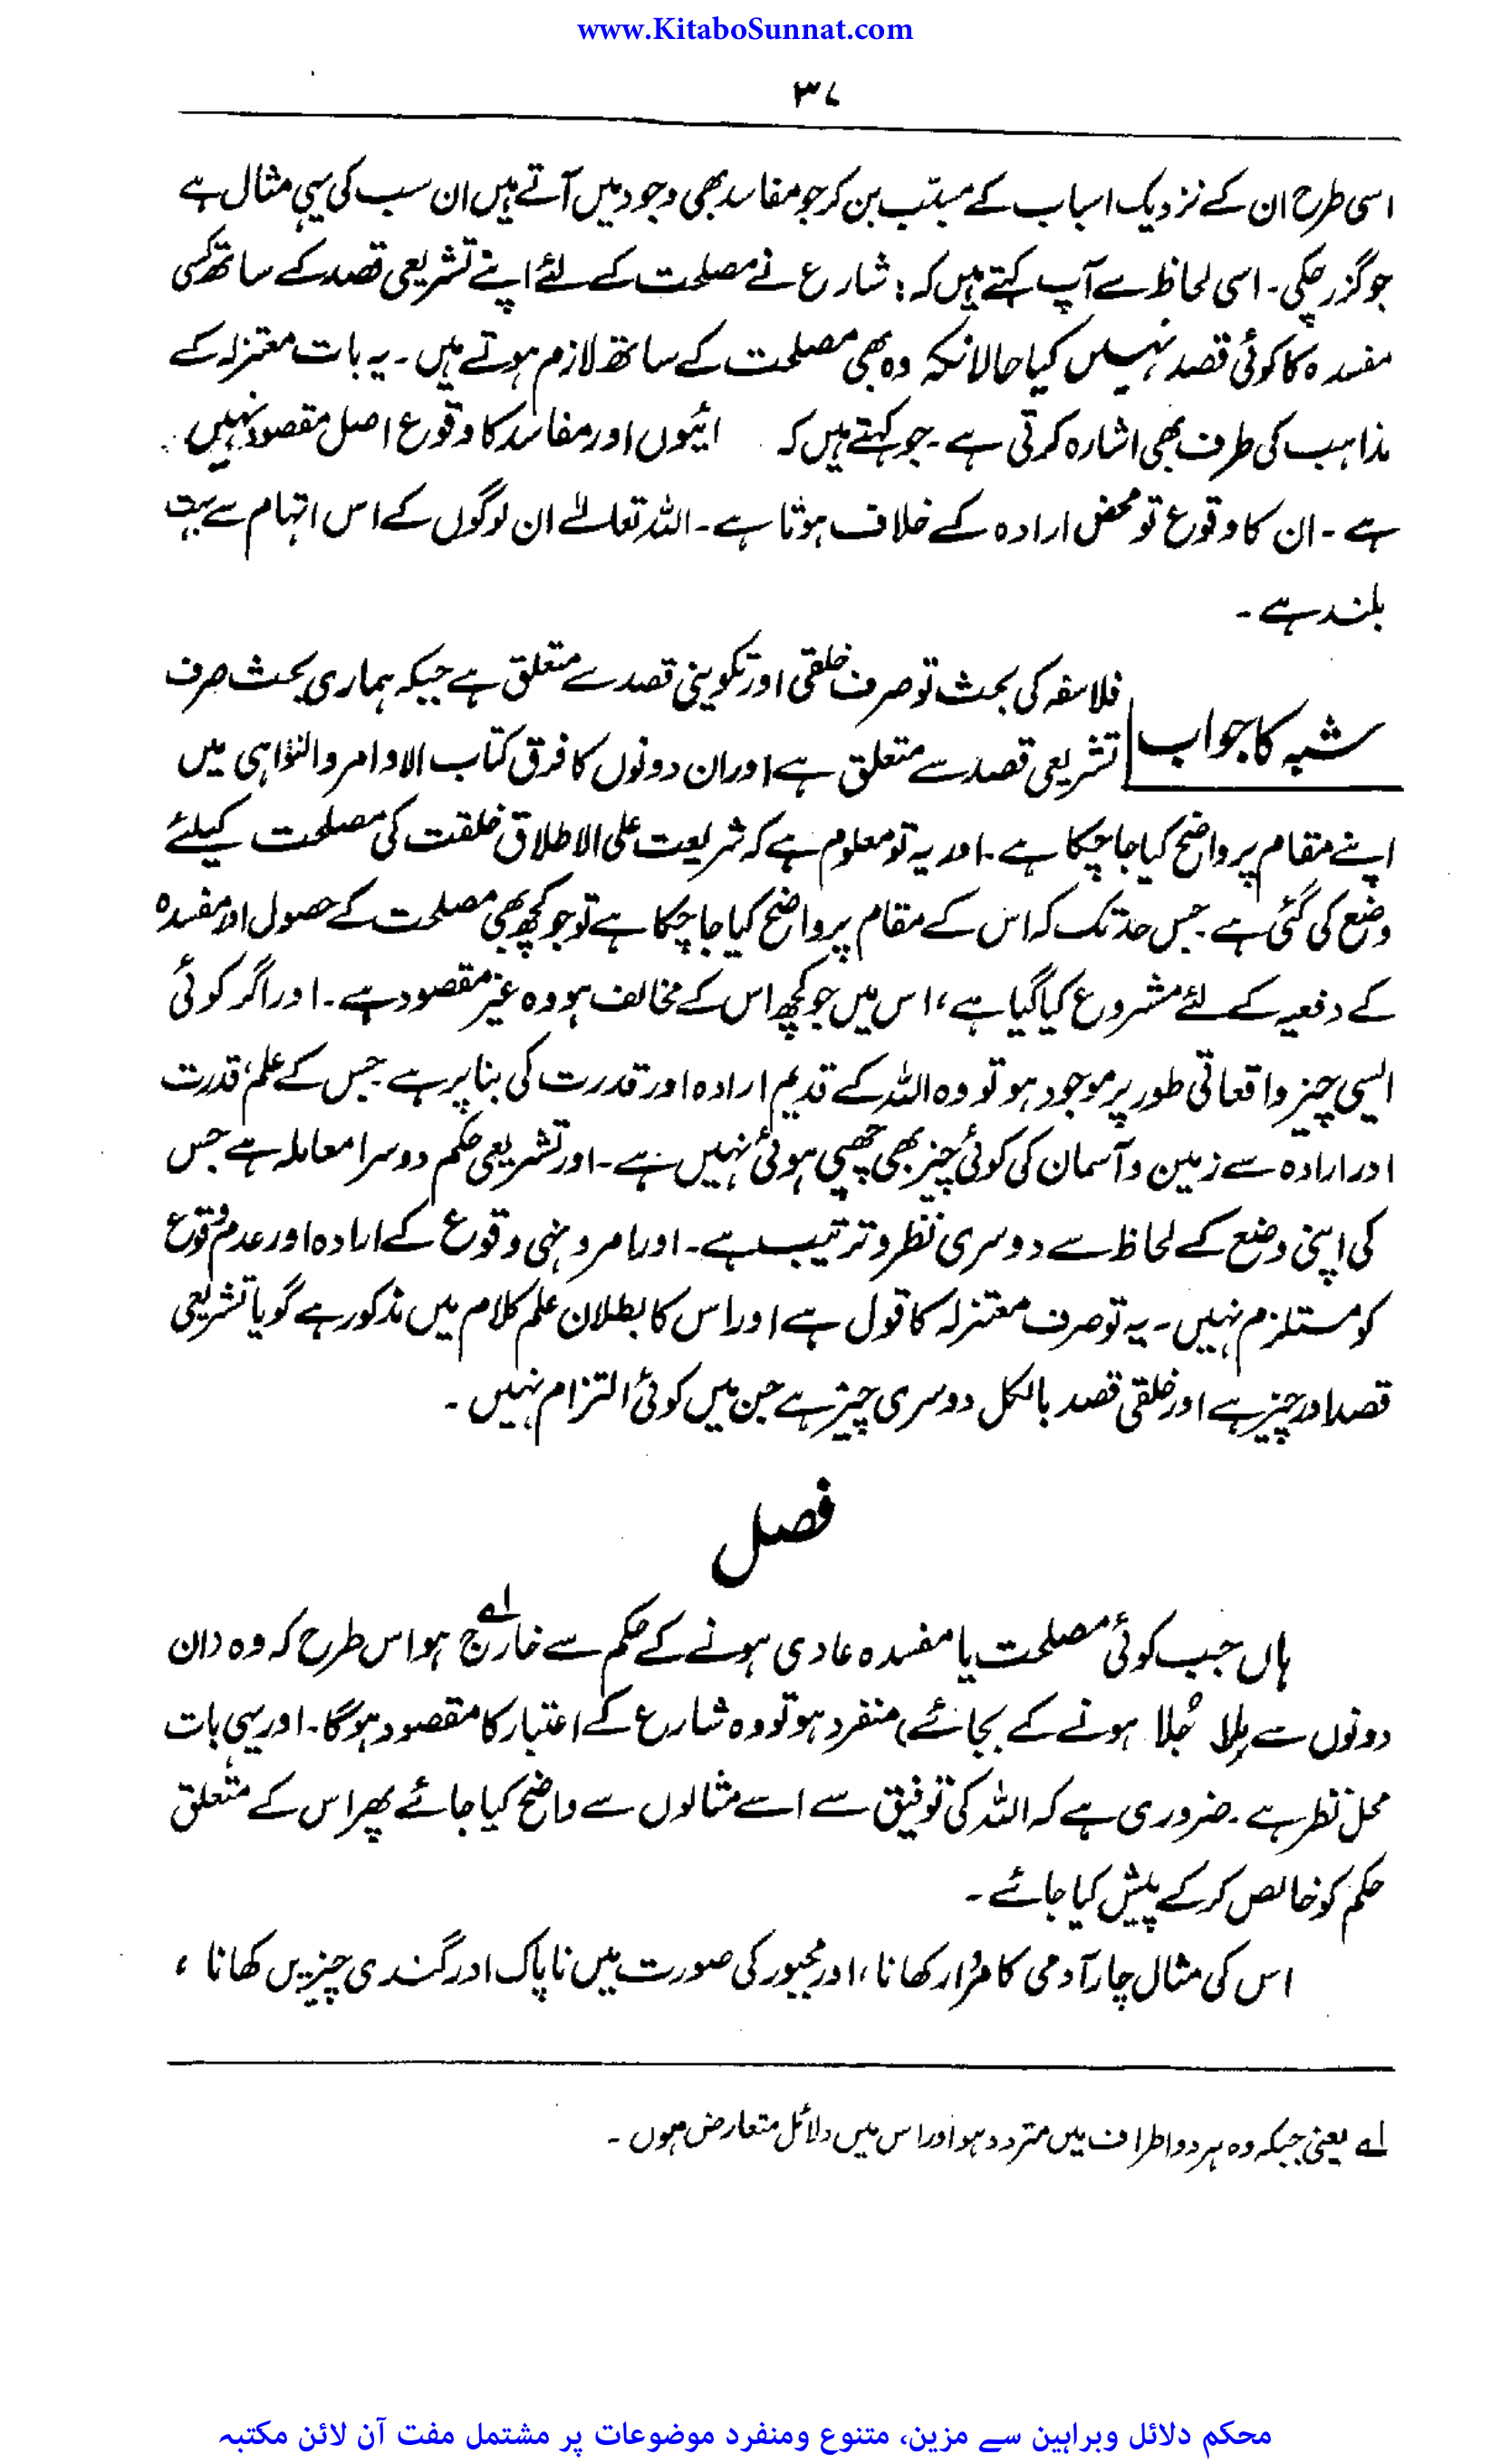 www.KitaboSunnat.com
۳۷
اسی طرح ان کے نزدیک اسباب کے مسبّب بن کر جو مفاسد بھی وجود میں آتے ہیں ان سب کی یہی مثال ہے
جو گزر چکی۔ اسی لحاظ سے آپ کہتے ہیں کہ: شارع نے مصلحت کے لئے اپنے تشریعی قصد کے ساتھ کسی
مفسدہ کا کوئی قصد نہیں کیا حالانکہ وہ بھی مصلحت کے ساتھ لازم ہوتے ہیں۔ یہ بات معتزلہ کے
مذاہب کی طرف بھی اشارہ کرتی ہے۔ جو کہتے ہیں کہ ائیوں اور مفاسد کا وقوع اصل مقصود نہیں
ہے۔ ان کا وقوع تو محض ارادہ کے خلاف ہوتا ہے۔ اللہ تعالےٰ ان لوگوں کے اس اتہام سے بہت
بلند ہے۔
شبہ کا جواب
فلاسفہ کی بحث تو صرف خلقی اور تکوینی قصد سے متعلق ہے جبکہ ہماری بحث صرف
تشریعی قصد سے متعلق ہے اور ان دونوں کا فرق کتاب الاوامر والنواہی میں
اپنے مقام پر واضح کیا جا چکا ہے۔ اور یہ تو معلوم ہے کہ شریعت علی الاطلاق خلقت کی مصلحت کیلئے
وضع کی گئی ہے۔ جس حد تک کہ اس کے مقام پر واضح کیا جا چکا ہے تو جو کچھ بھی مصلحت کے حصول اور مفسدہ
کے دفعیہ کے لئے مشروع کیا گیا ہے، اس میں جو کچھ اس کے مخالف ہو وہ غیر مقصود ہے۔ اور اگر کوئی
ایسی چیز واقعاتی طور پر موجود ہو تو وہ اللہ کے قدیم ارادہ اور قدرت کی بنا پر ہے۔ جس کے علم، قدرت
اور ارادہ سے زمین و آسمان کی کوئی چیز بھی چھپی ہوئی نہیں ہے۔ اور تشریعی حکم دوسرا معاملہ ہے جس
کی اپنی وضع کے لحاظ سے دوسری نظر و ترتیب ہے۔ اور امر و نہی وقوع کے ارادہ اور عدم وقوع
کو مستلزم نہیں۔ یہ تو صرف معتزلہ کا قول ہے اور اس کا بطلان علم کلام میں مذکور ہے گویا تشریعی
قصد اور چیز ہے اور خلقی قصد بالکل دوسری چیز ہے جن میں کوئی التزام نہیں۔
فصل
ہاں جب کوئی مصلحت یا مفسدہ عادی ہونے کے حکم سے خارج لے ہو اس طرح کہ وہ (ان
دونوں سے مِلا جُلا ہونے کے بجائے) منفرد ہو تو وہ شارع کے اعتبار کا مقصود ہوگا۔ اور یہی بات
محل نظر ہے۔ ضروری ہے کہ اللہ کی توفیق سے اسے مثالوں سے واضح کیا جائے پھر اس کے متعلق
حکم کو خالص کر کے پیش کیا جائے۔
اس کی مثال چار آدمی کا مُردار کھانا، اور مجبور کی صورت میں ناپاک اور گندی چیزیں کھانا،
لے یعنی جبکہ وہ ہر دو اطراف میں متردد ہو اور اس میں دلائل متعارض ہوں۔
محکم دلائل وبراہین سے مزین، متنوع ومنفرد موضوعات پر مشتمل مفت آن لائن مکتبہ